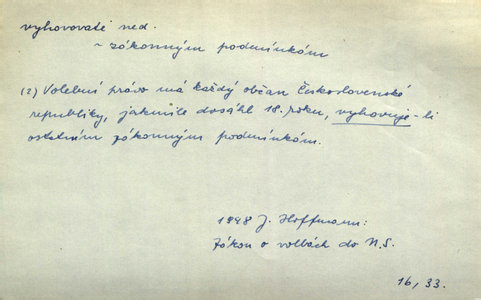 vyhovovati ned.
~ zákonným podmínkám
(2) Volební právo má každý občan Československé
republiky, jakmile dosáhl 18. roku, vyhovuje-li
ostatním zákonným podmínkám.
1948 J. Hoffmann:
Zákon o volbách do N.S.
16, 33.